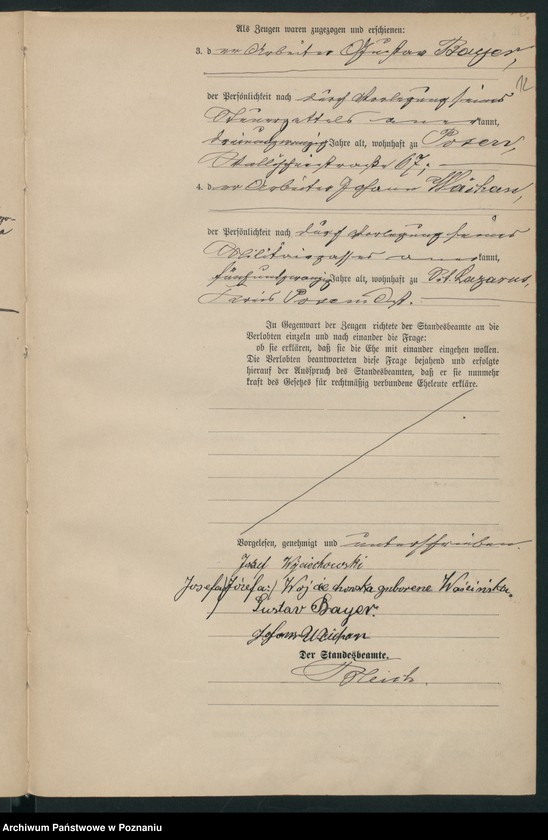 Als Zeugen waren zugezogen und erschienen:
3. der Arbeiter Gustav Bayer,
12
der Persönlichkeit nach durch Vorlegung seines
Steuerzettels anerkannt,
dreiundzwanzig Jahre alt, wohnhaft zu Posen,
Wallischeistraße 67;
4. der Arbeiter Johann
der Persönlichkeit nach durch Vorlegung seines
Militairpasses anerkannt,
fünfundzwanzig Jahre alt, wohnhaft zu Skt. Lazarus,
Kreis Posen Ost.
In Gegenwart der Zeugen richtete der Standesbeamte an die
Verlobten einzeln und nach einander die Frage:
ob sie erklären, daß sie die Ehe mit einander eingehen wollen.
Die Verlobten beantworteten diese Frage bejahend und erfolgte
hierauf der Ausspruch des Standesbeamten, daß er sie nunmehr
kraft des Gesetzes für rechtmäßig verbundene Eheleute erkläre.
Vorgelesen, genehmigt und unterschrieben.
Józef Wojciechowski
Josefa /:Józefa:/ Wojciechowska geborene
Gustav Bayer.
Johann
Der Standesbeamte.
Bleich.
Archiwum Państwowe w Poznaniu